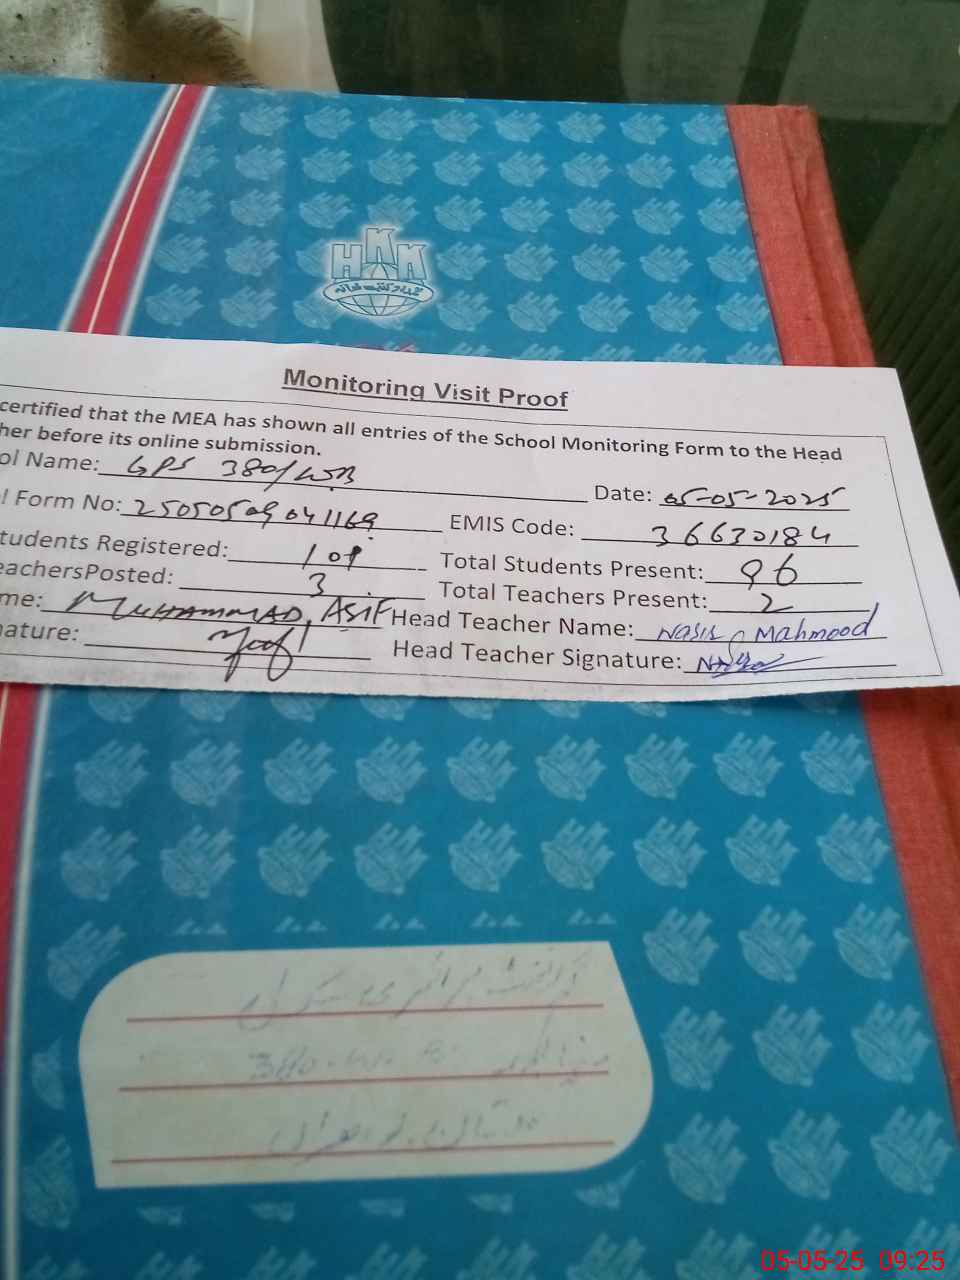 HKM
Monitoring Visit Proof
certified that the MEA has shown all entries of the School Monitoring Form to the Head
her before its online submission.
ol Name: GPS 380/WB Date: 05-05-2025
l Form No: 25050509041169 EMIS Code: 36630184
tudents Registered: 101 Total Students Present: 96
eachersPosted: 3 Total Teachers Present: 2
me: MUHAMMAD ASIF Head Teacher Name: Nasir Mahmood
nature: Head Teacher Signature:
گورنمنٹ پرائمری سکول
380
05-05-25 09:25